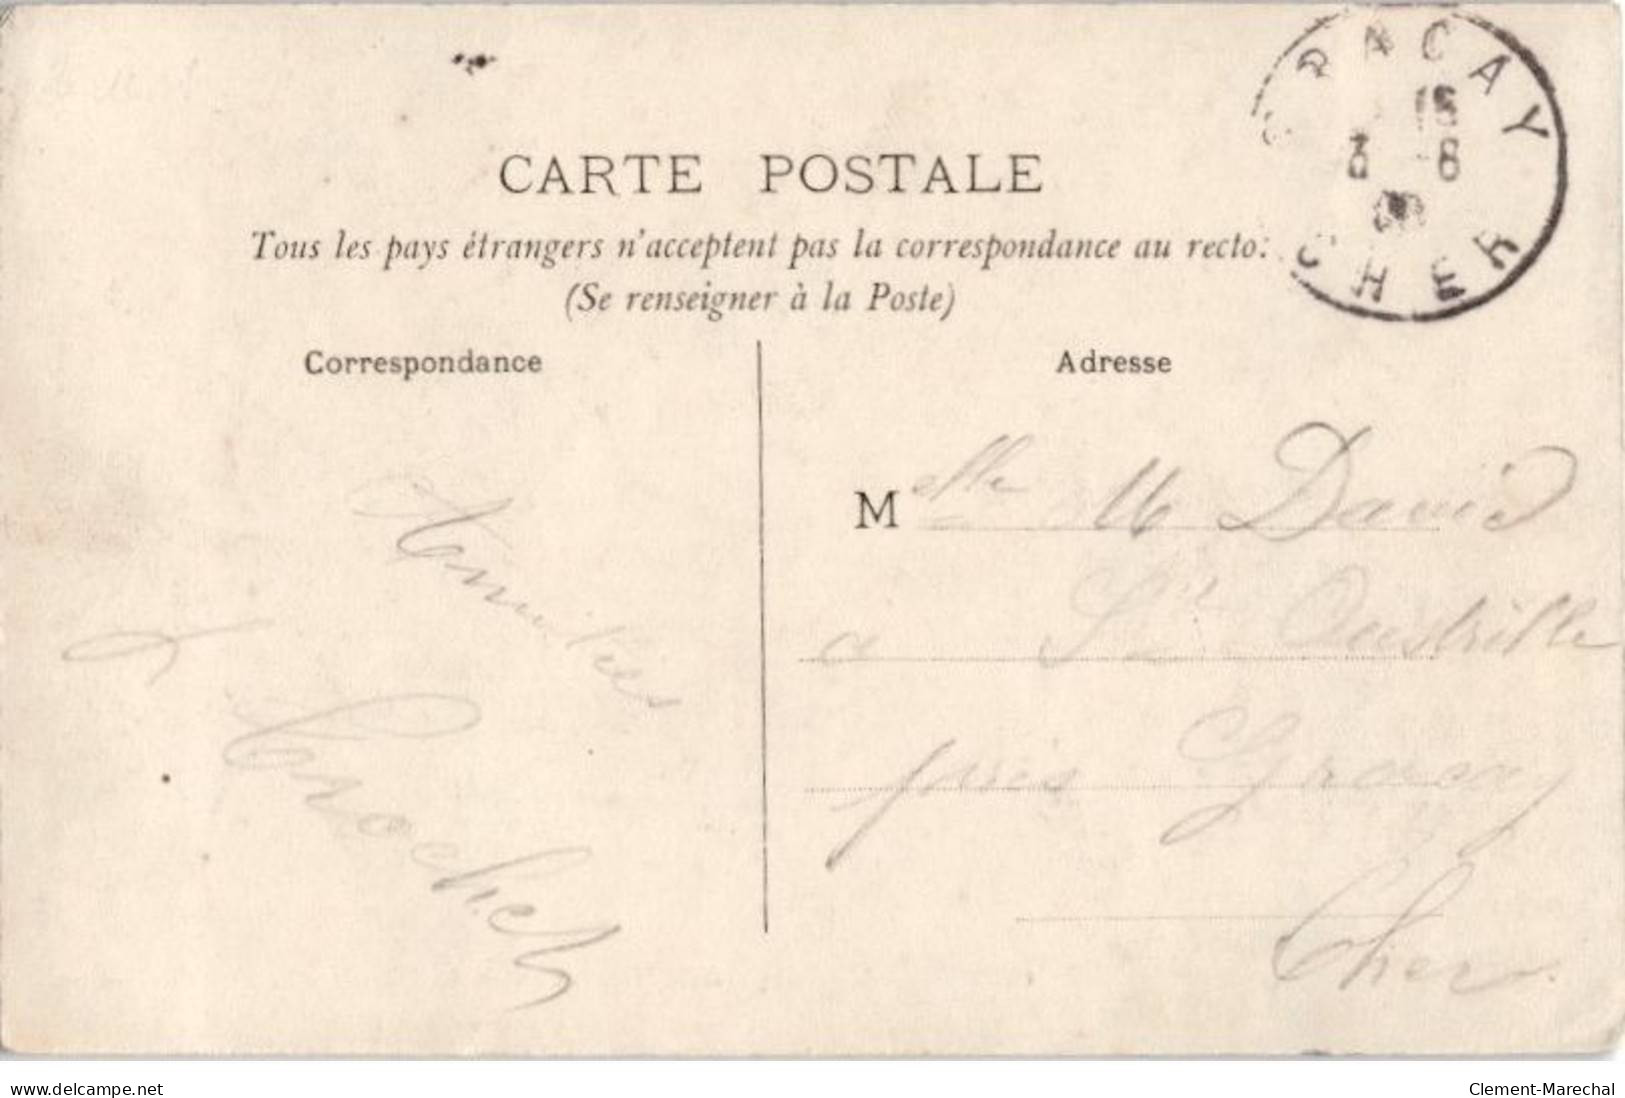 GRACAY
15
3 -8
CHER
CARTE POSTALE
Tous les pays étrangers n'acceptent pas la correspondance au recto:
(Se renseigner à la Poste)
Correspondance
Amitiés
Crochet
Adresse
Melle M David
a Ste Oustrille
près Graçay
Cher
www.delcampe.net
Clement-Marechal